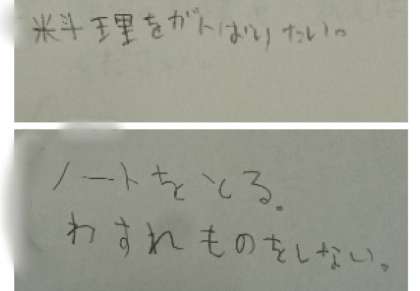 米斗王里をがんばりたい。
ノートをとる。
わすれものをしない。